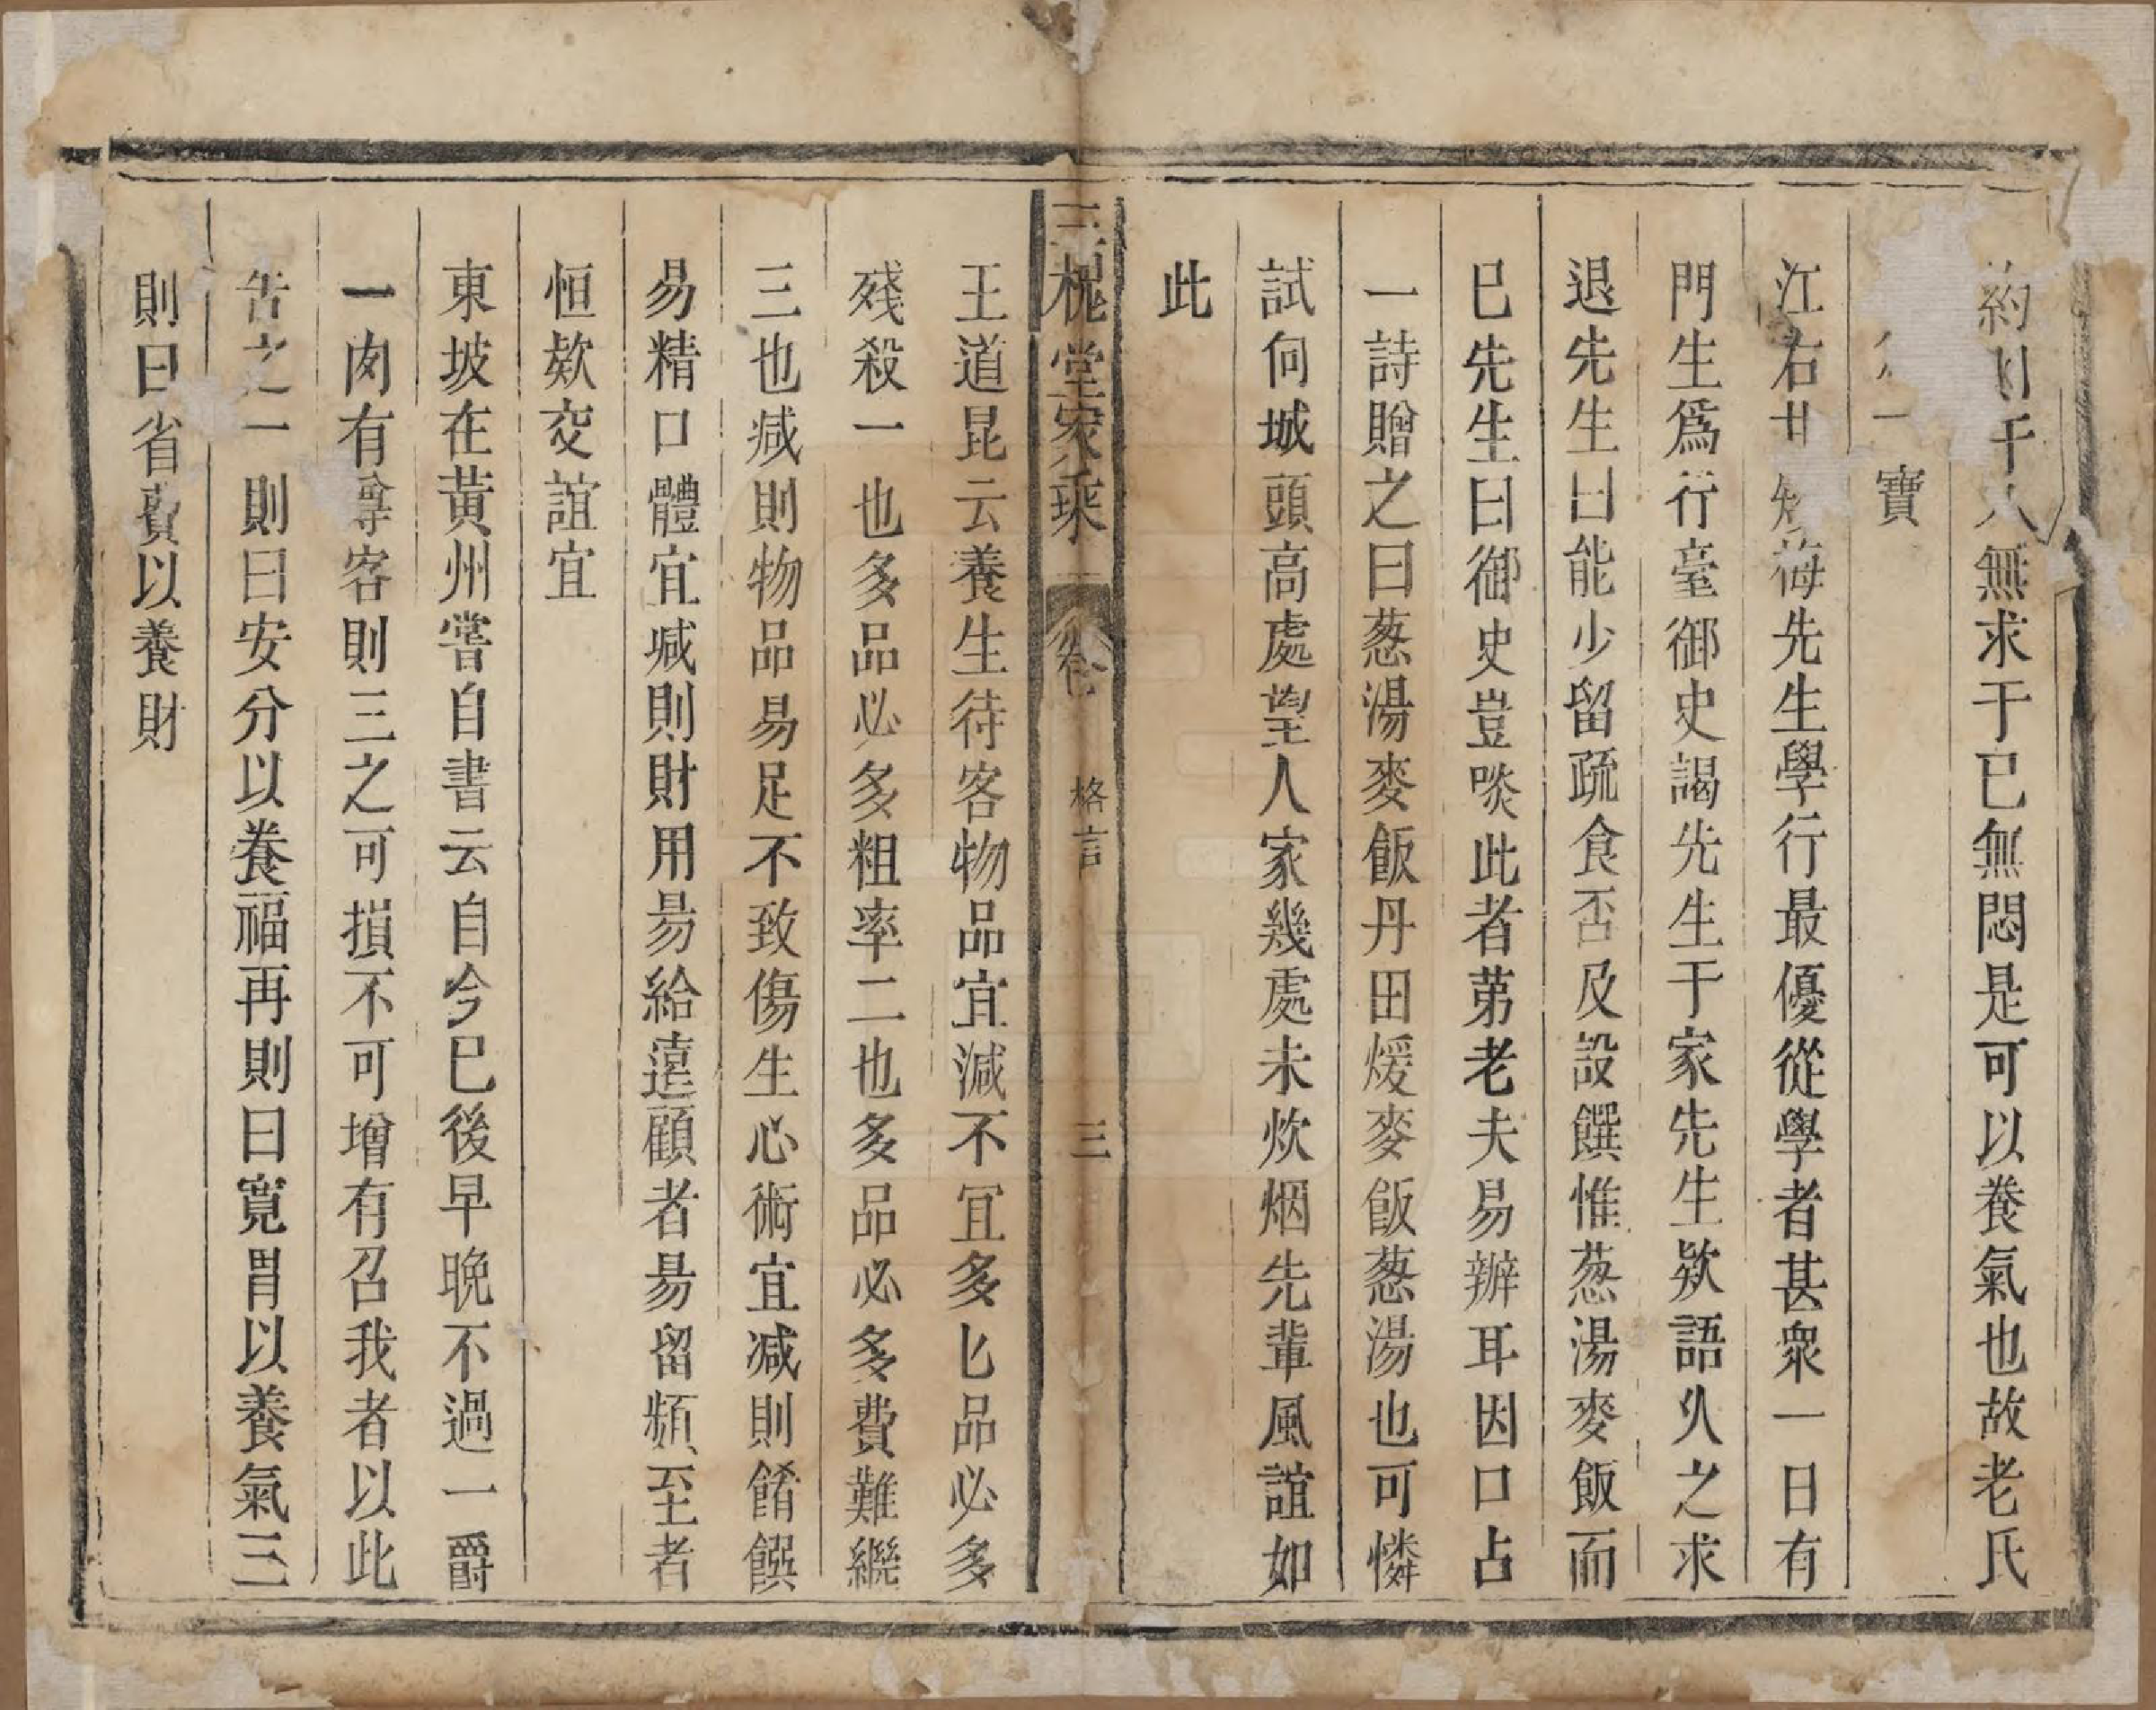 約則于人無求于已無悶是可以養氣也故老氏
一寶
江右甘梅先生學行最優從學者甚衆一日有
門生爲行臺御史謁先生于家先生欵語久之求
退先生曰能少留疏食否及設饌惟葱湯麥飯而
已先生曰御史豈啖此者苐老夫易辦耳因口占
一詩贈之曰葱湯麥飯丹田煖麥飯葱湯也可憐
試向城頭高處望人家幾處未炊烟先輩風誼如
此
三槐堂家乘 卷 格言 三
王道昆云養生待客物品宜減不宜多匕品必多
殘殺一也多品必多粗率二也多品必多費難繼
三也减則物品易足不致傷生心術宜减則餚饌
易精口體宜减則財用易給遠顧者易留頻至者
恒欵交誼宜
東坡在黃州嘗自書云自今已後早晚不過一爵
一肉有尊客則三之可損不可增有召我者以此
告之一則曰安分以養福再則曰寬胃以養氣三
則曰省費以養財